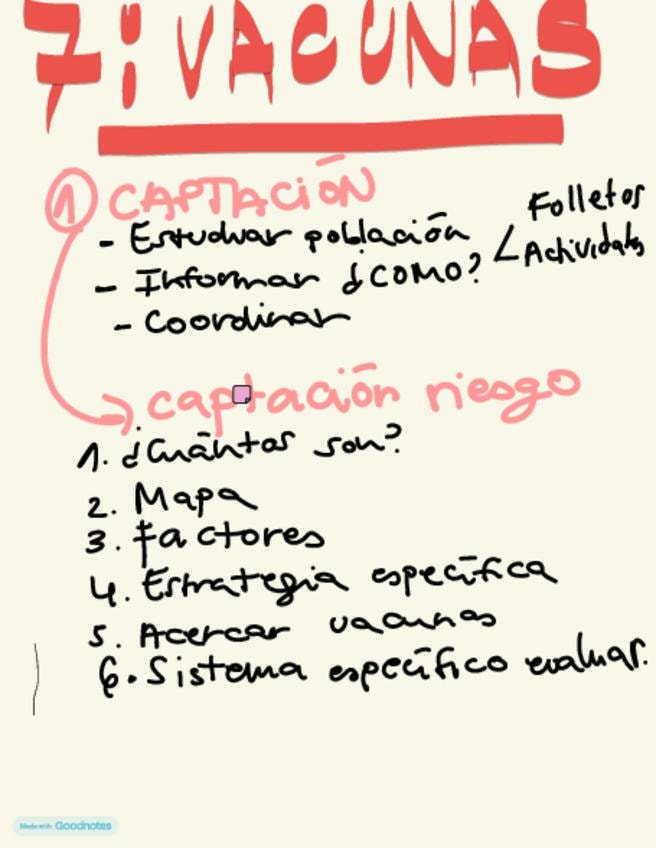 7: VACUNAS
1 CAPTACIÓN
- Estudiar población
- Informar ¿COMO? < Folletos
Actividades
- Coordinar
captación riesgo
1. ¿Cuántas son?
2. Mapa
3. factores
4. Estrategia específica
5. Acercar vacunas
6. Sistema específico evaluar.
Made with Goodnotes